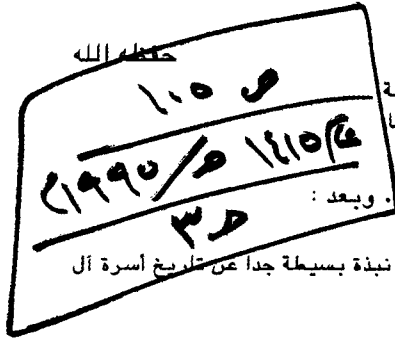 حفظه الله
ص ١٠٥
ة
ا
عام ١٤١٥ هـ/١٩٩٥م
. وبعد :
ط ٣
نبذة بسيطة جدا عن تاريخ أسرة آل